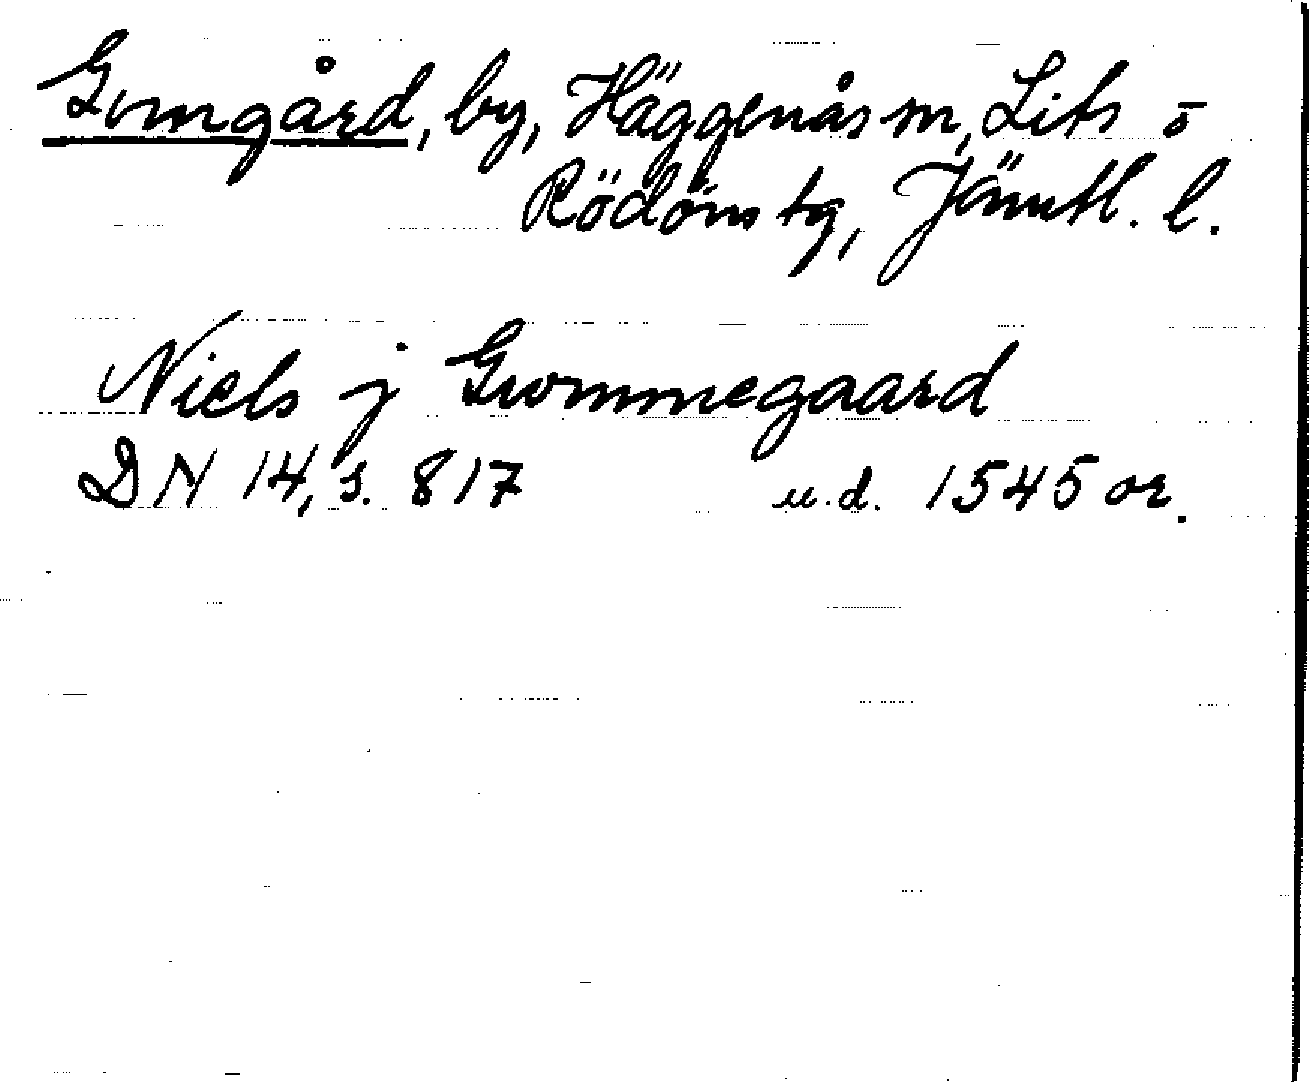 Gomgård, by, Häggenås sn, Lits o
Rödöns tg, Jämtl. l.
Niels j Grommegaard
DN 14, s. 817 u.d. 1545 or.